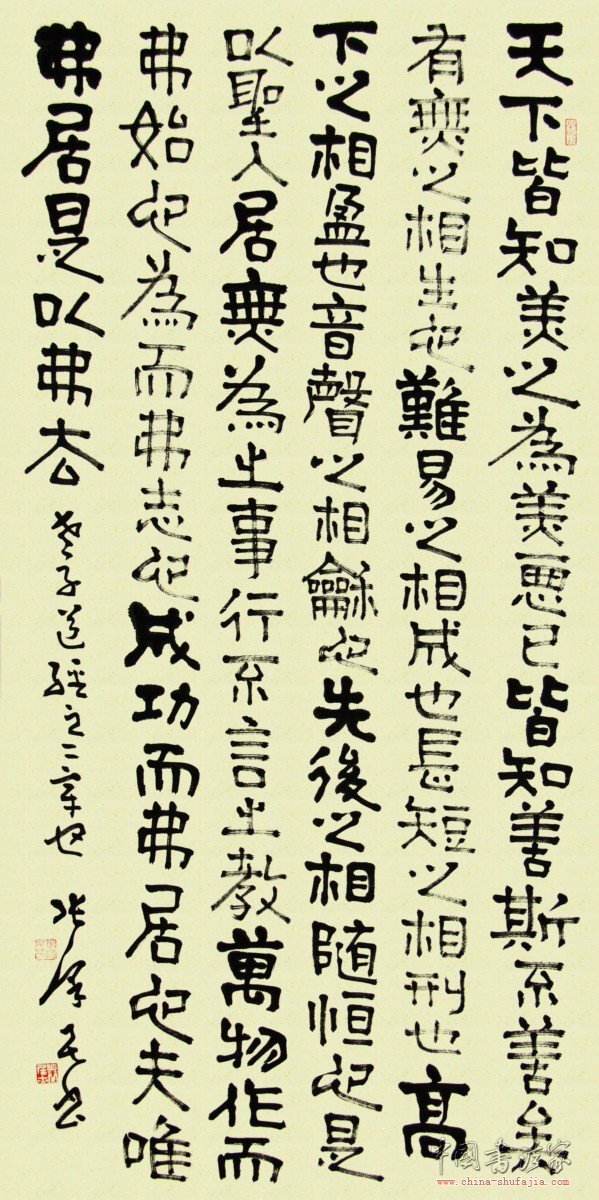 天下皆知美之為美惡已皆知善斯不善矣
有無之相生也難易之相成也長短之相刑也高
下之相盈也音聲之相龢也先後之相隨恒也是
以聖人居無為之事行不言之教萬物作而
弗始也為而弗志也成功而弗居也夫唯
弗居是以弗去
老子道經之二章也
中国书法家
www.china-shufajia.com